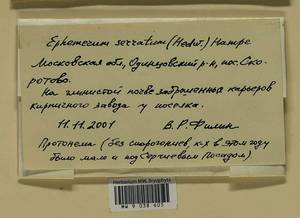 Ephemerum serratum (Hedw.) Hampe
Московская обл., Одинцовский р-н, пос. Ско-
ротово.
На глинистой почве заброшенных карьеров
кирпичного завода у поселка.
11.11.2001 В.Р. Филин
Протонема (без спорогониев, к-х в этом году
было мало и под Сергиевым Посадом)
Herbarium MW, Bryophyta
MW 9 038 605